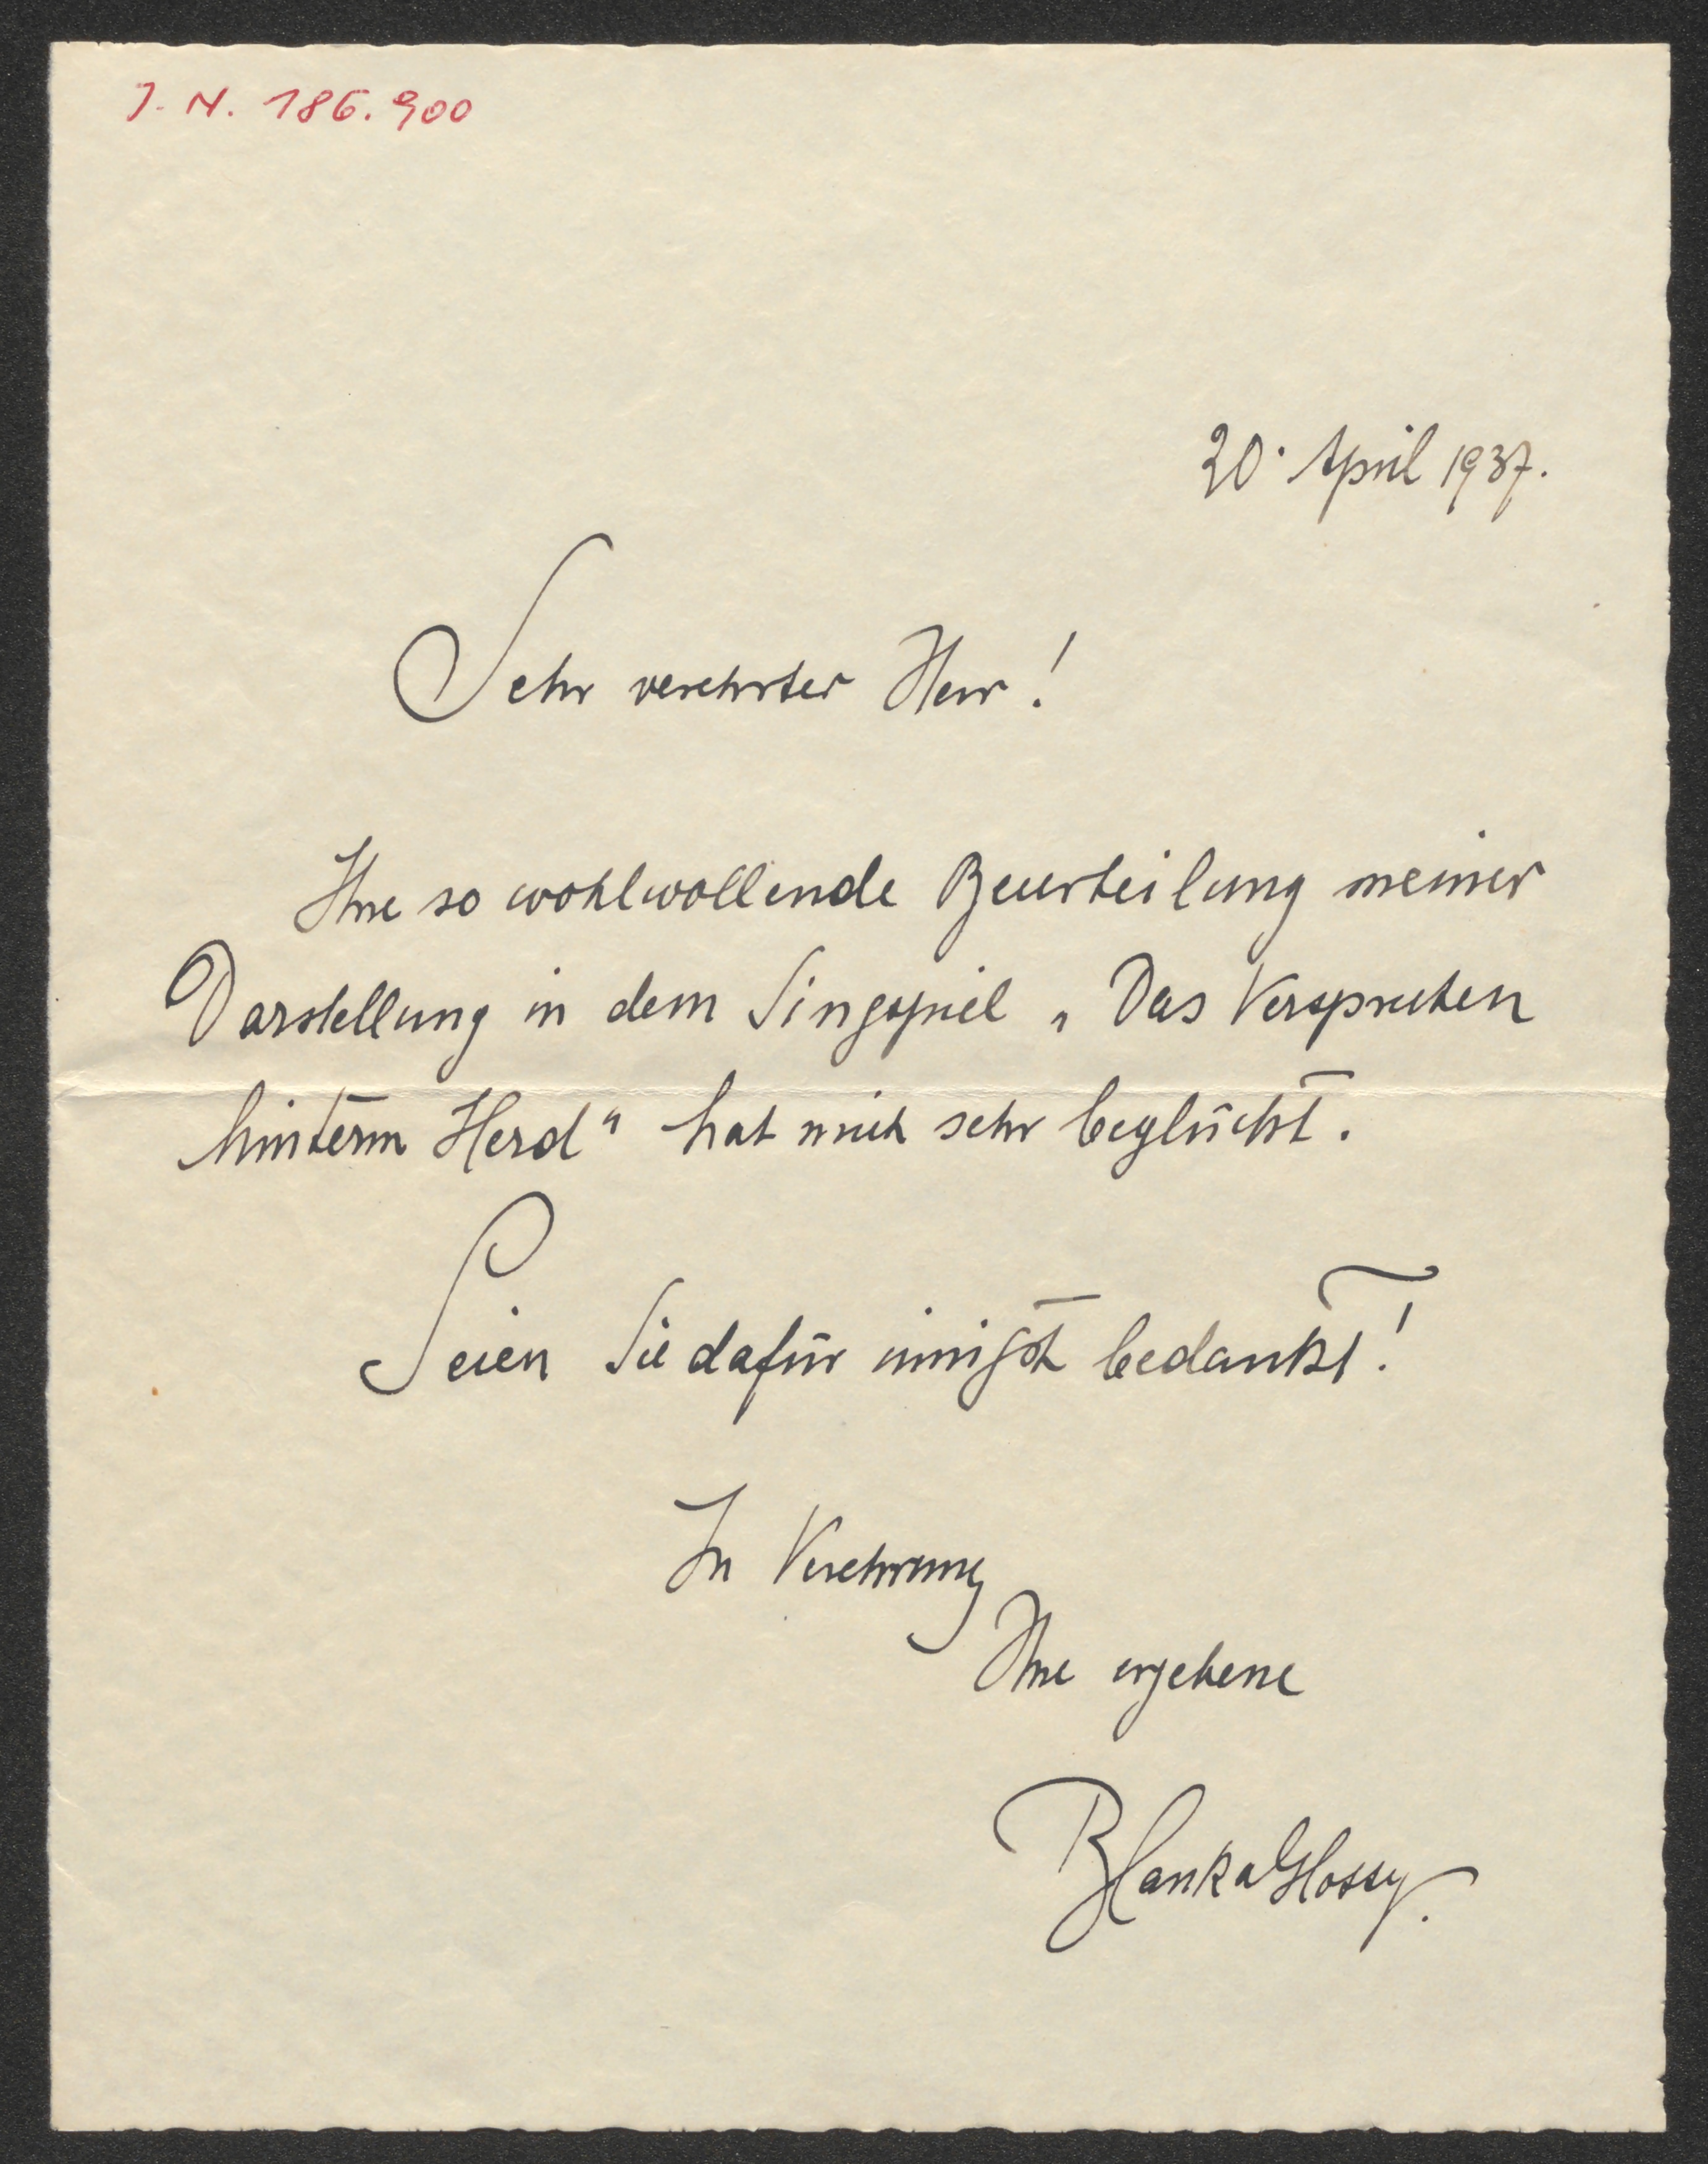 J. N. 186.900
20. April 1937.
Sehr verehrter Herr!
Ihre so wohlwollende Beurteilung meiner
Darstellung in dem Singspiel „Das Versprechen
hinterm Herd" hat mich sehr beglückt.
Seien Sie dafür innigst bedankt!
In Verehrung
Ihre ergebene
Blanka Glossy.